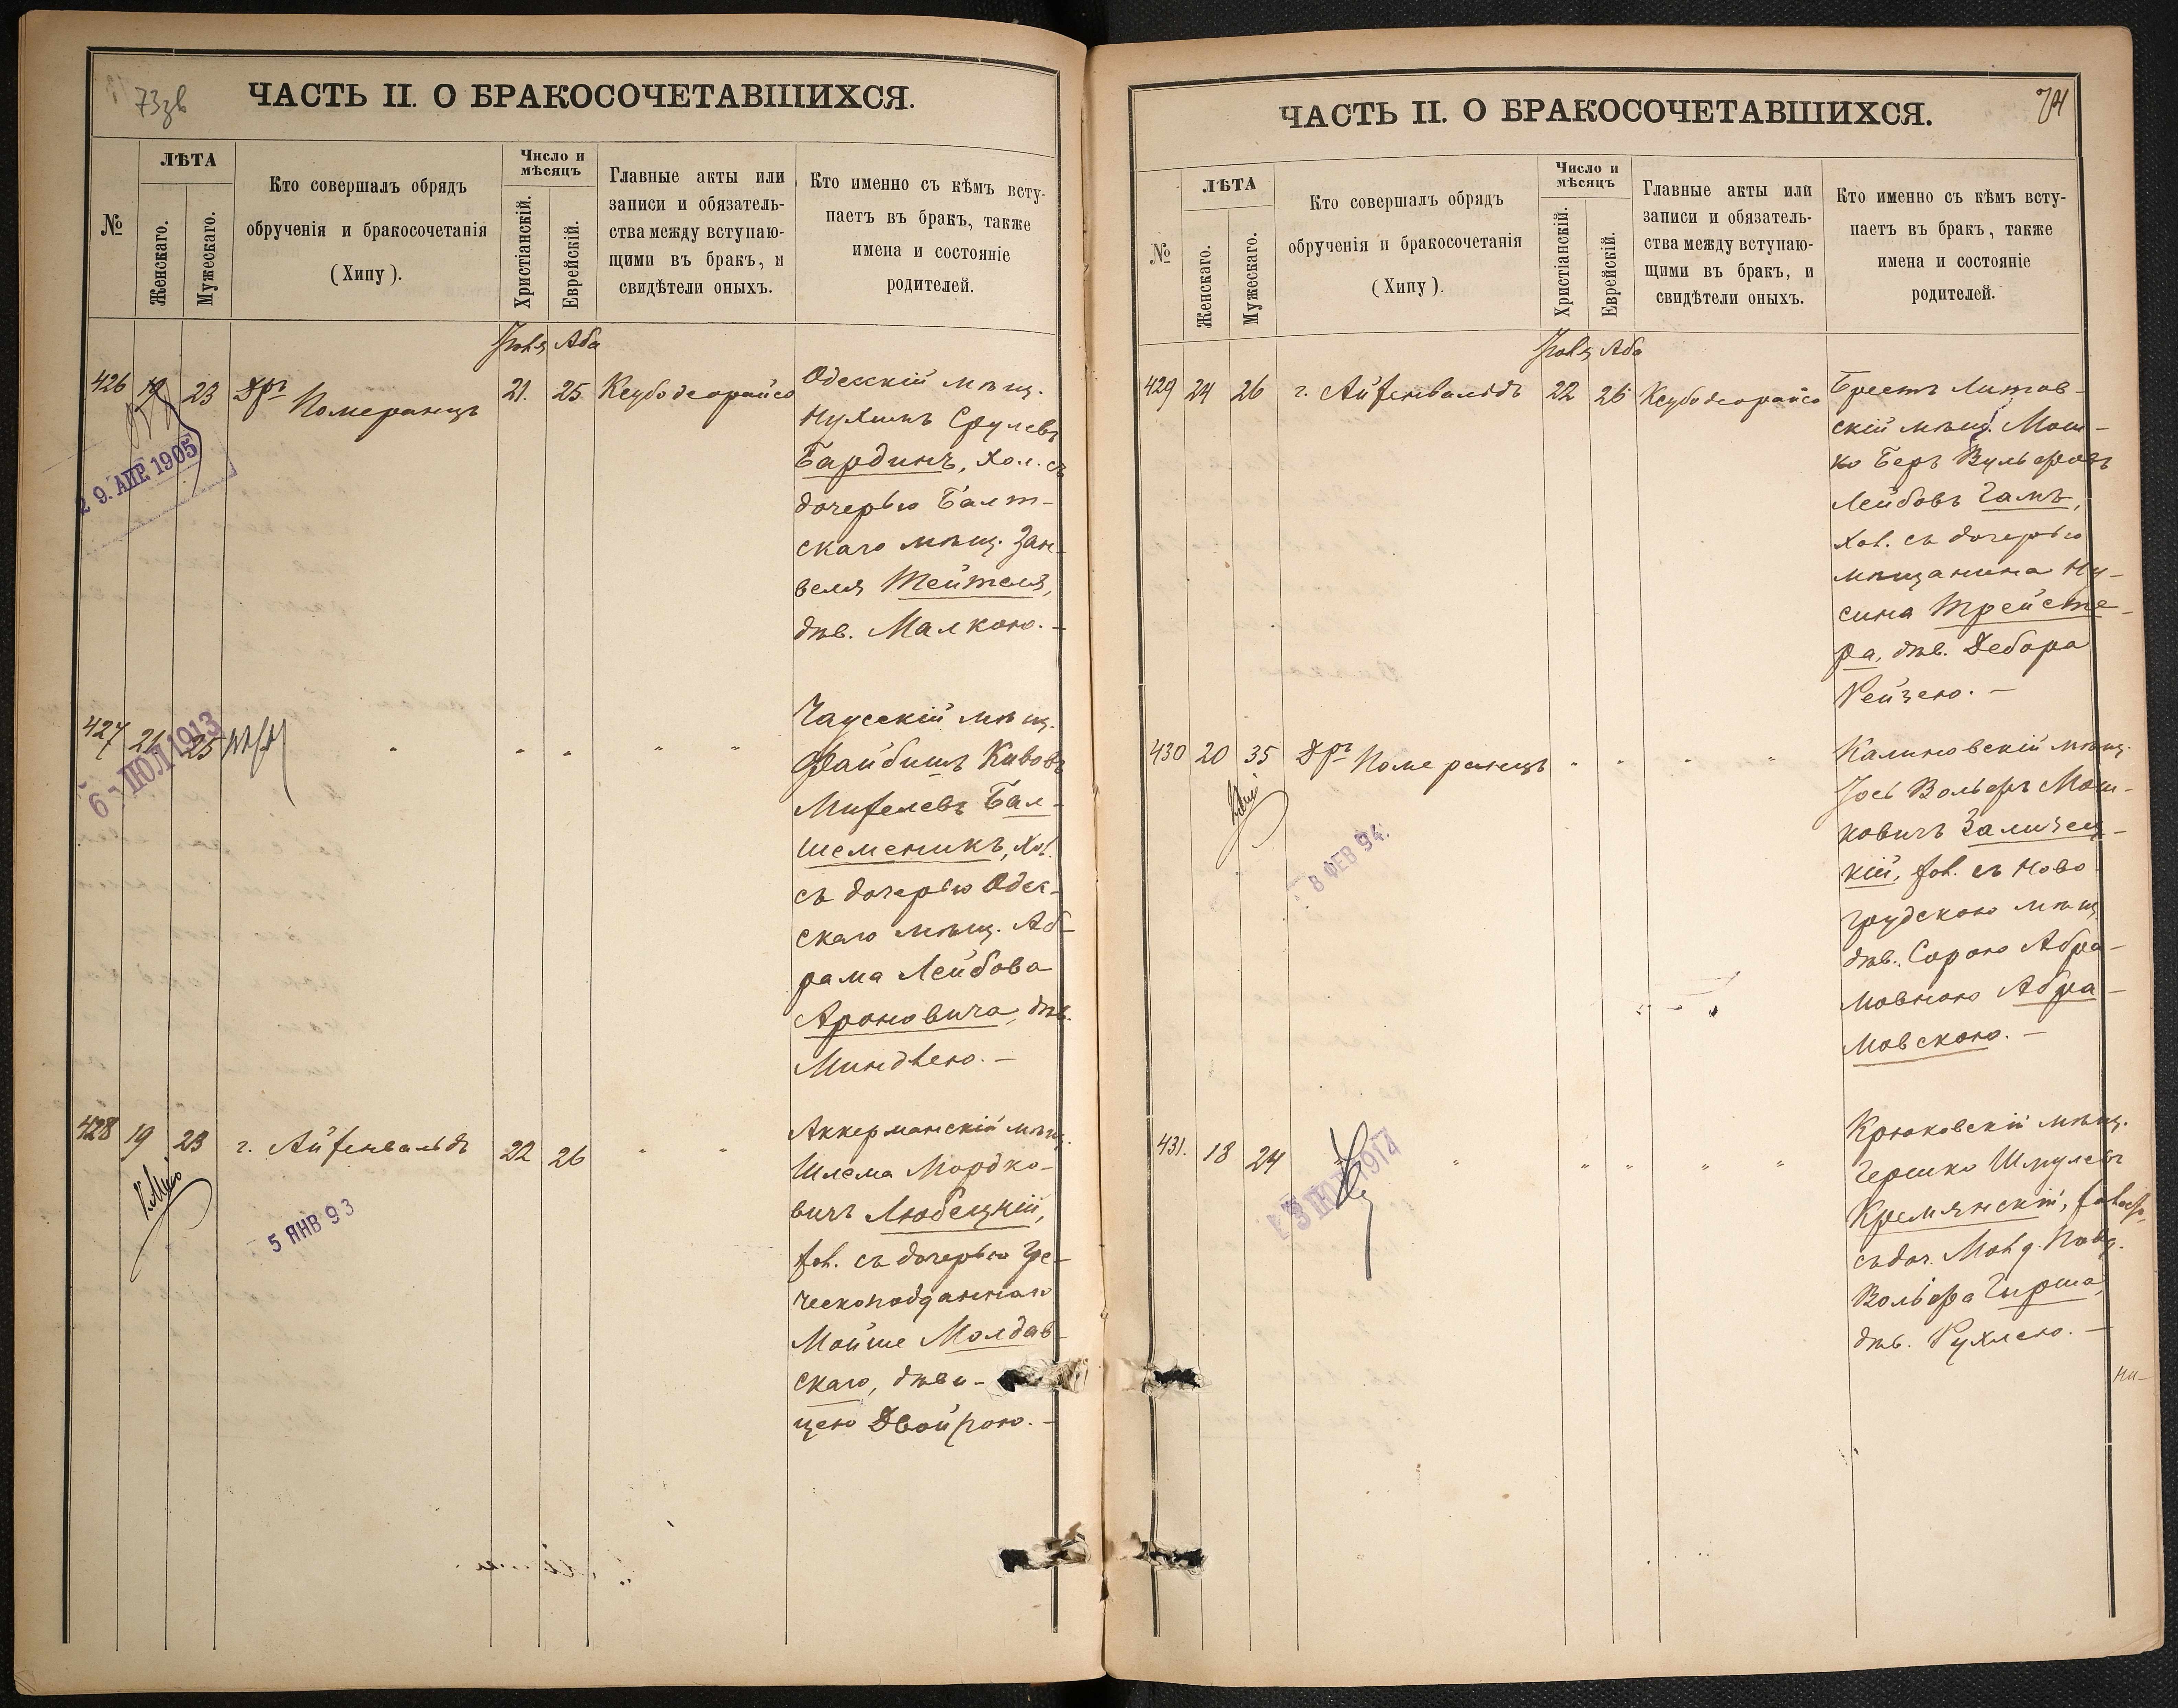 73зв
ЧАСТЬ II. О БРАКОСОЧЕТАВШИХСЯ.
№
ЛѢТА
Женскаго.
Мужескаго.
Кто совершалъ обрядъ
обрученія и бракосочетанія
(Хипу).
Число и
мѣсяцъ
Христіанскій.
Еврейскій.
Главные акты или
записи и обязатель-
ства между вступаю-
щими въ бракъ, и
свидѣтели оныхъ.
Кто именно съ кѣмъ всту-
паетъ въ бракъ, также
имена и состояніе
родителей.
Іюля Аба
426 19 23 Дръ Померанцъ 21. 25 Ксубо деорайсо
29. АПР. 1905
Одесскій мѣщ.
Нухимъ Срулевъ
Бардинъ, хол. съ
дочерью Балт-
скаго мѣщ. Зан-
веля Тейтеля,
дѣв. Малкою. —
427 21 25 " " " " "
6 - ІЮЛ 1913
Чаусскій мѣщ.
Файбишъ Кивовъ
Михелевъ Бал-
шеменикъ, хол.
съ дочерью Одес-
скаго мѣщ. Аб-
рама Лейбова
Ароновича, дѣв.
Миндлею. —
428 19 23 г. Айхенвальдъ 22 26 " "
5 ЯНВ 93
Аккерманскій мѣщ.
Шлема Мордко-
вичъ Любецкій,
хол. съ дочерью гре-
ческоподданнаго
Мойше Молдав-
скаго, дѣви-
цею Двойрою. —
74
ЧАСТЬ II. О БРАКОСОЧЕТАВШИХСЯ.
№
ЛѢТА
Женскаго.
Мужескаго.
Кто совершалъ обрядъ
обрученія и бракосочетанія
(Хипу).
Число и
мѣсяцъ
Христіанскій.
Еврейскій.
Главные акты или
записи и обязатель-
ства между вступаю-
щими въ бракъ, и
свидѣтели оныхъ.
Кто именно съ кѣмъ всту-
паетъ въ бракъ, также
имена и состояніе
родителей.
Іюля Аба
429 24 26 г. Айхенвальдъ 22 26 Ксубо деорайсо
Брестъ Литов-
скій мѣщ. Мош-
ко Беръ Вульфовъ
Лейбовъ Гамъ,
хол. съ дочерью
мѣщанина Ну-
сина Трейсте-
ра, дѣв. Дебора
Рейзею. —
430 20 35 Дръ Померанецъ " " " "
8 ФЕВ 94.
Калиновскій мѣщ.
Іось Вольфъ Мош-
ковичъ Зализец-
кій, хол. съ Ново-
грудскою мѣщ.
дѣв. Сорою Абра-
мовною Абра-
мовскою. —
431. 18 24 " " " " "
Крюковскій мѣщ.
Гершко Шмулевъ
Кремянскій,
съ доч. Молд. Подд.
Вольфа Гирша,
дѣв. Рухлею. —
Ни-